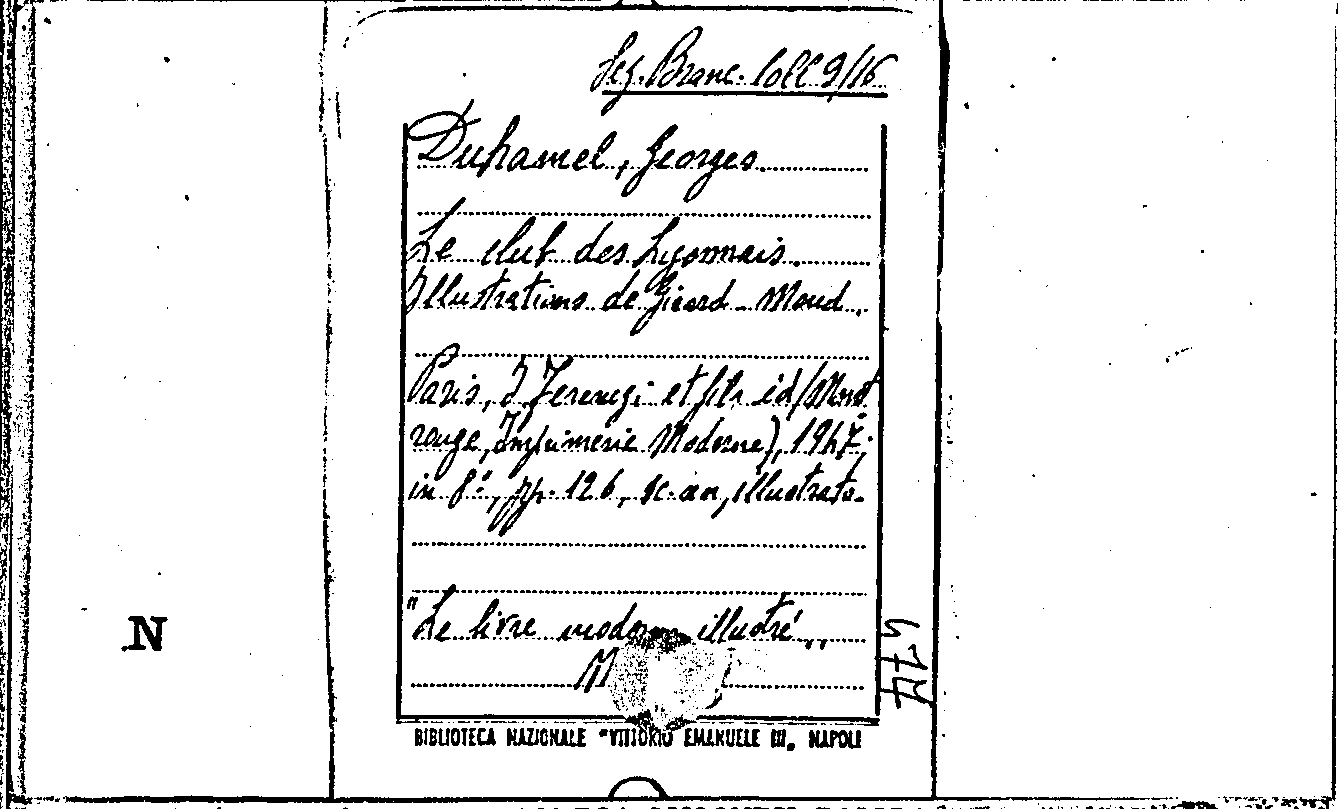 Sez. Branc. Coll 9/16
Duhamel, Georges.
Le club des Lyonnais.
Illustrations de Girard-Moud.
Paris, J. Ferenczi et fils éd/Mont
rouge, Imprimerie Moderne), 1947;
in 8°, pp. 126, sc. an, illustrato.
"Le livre moderne illustré„
BIBLIOTECA NAZIONALE "VITTORIO EMANUELE III„ NAPOLI
N